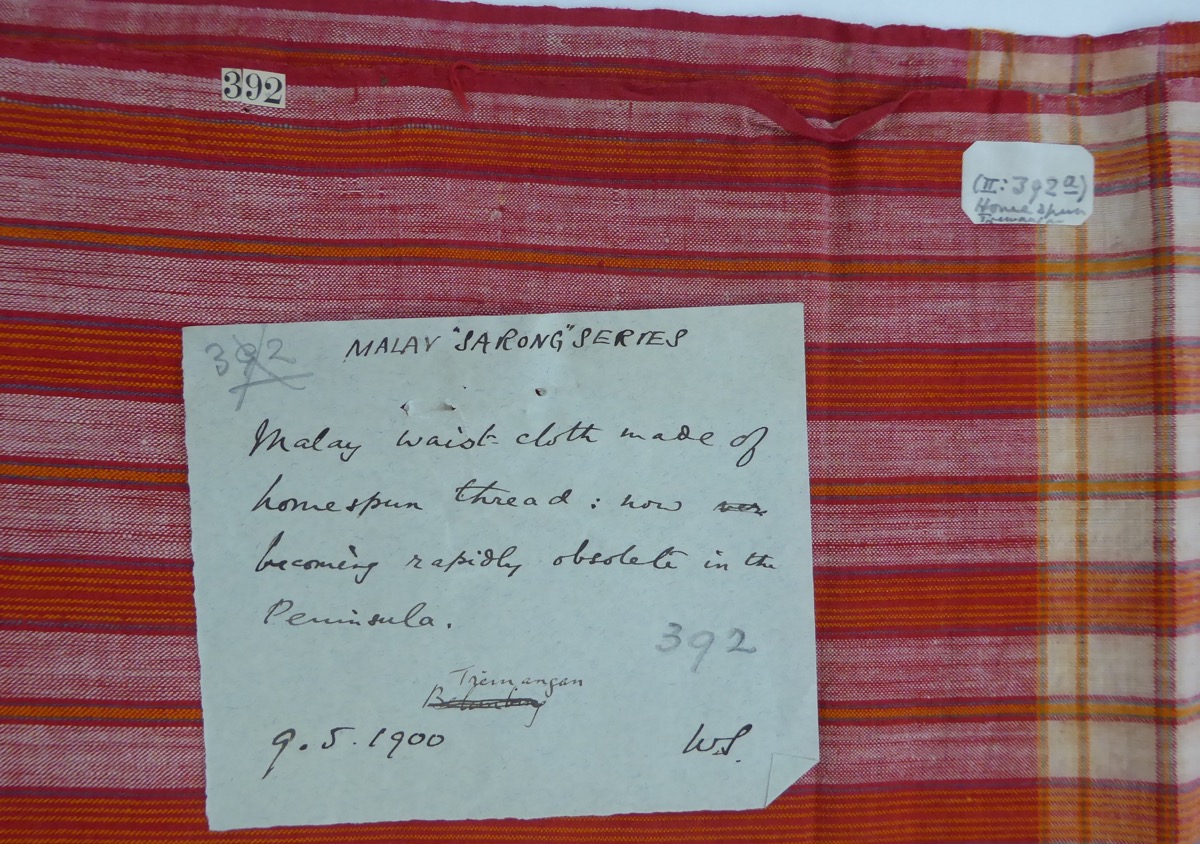 392
(II: 392a)
Homespun
Tremangan
392
MALAY "SARONG" SERIES
Malay waist-cloth made of
homespun thread: now
becoming rapidly obsolete in the
Peninsula.
392
Tremangan
9.5.1900
W.S.